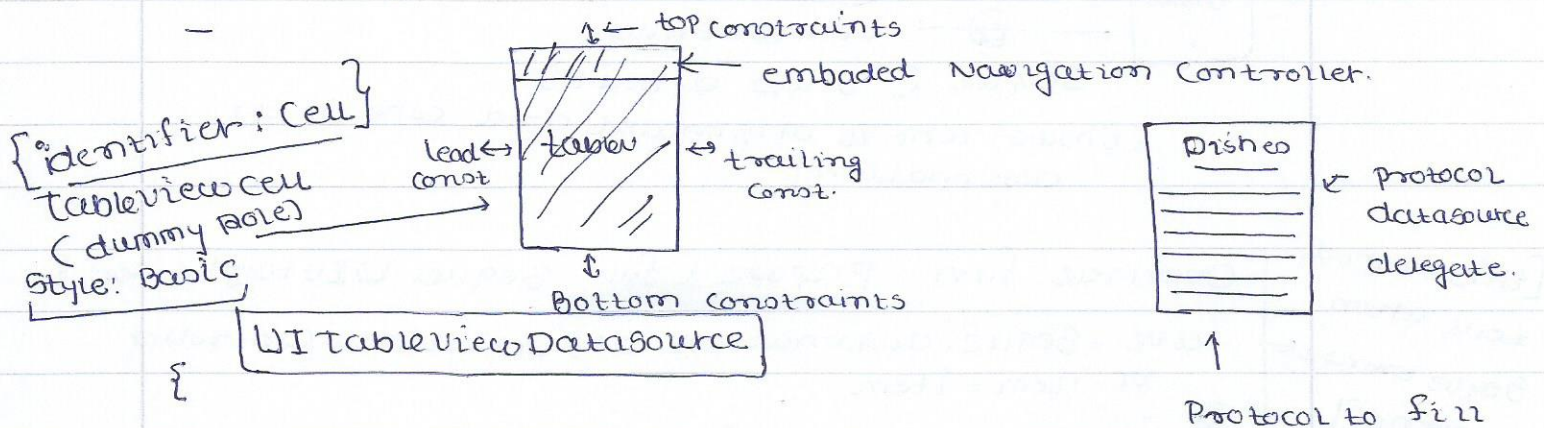 top constraints
embaded Navigation Controller.
{identifier: Cell}
tableview cell
(dummy role)
Style: Basic
lead
const
table
trailing
const.
Bottom constraints
UITableViewDatasource
{
Dishes
protocol
datasource
delegate.
Protocol to fill